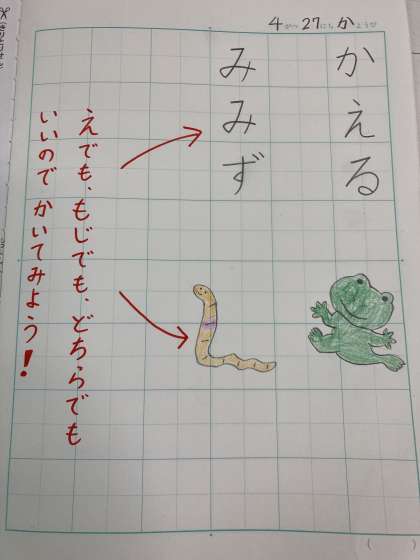 4がつ27にちかようび
かえる
みみず
えでも、もじでも、どちらでも
いいので かいてみよう！
( )